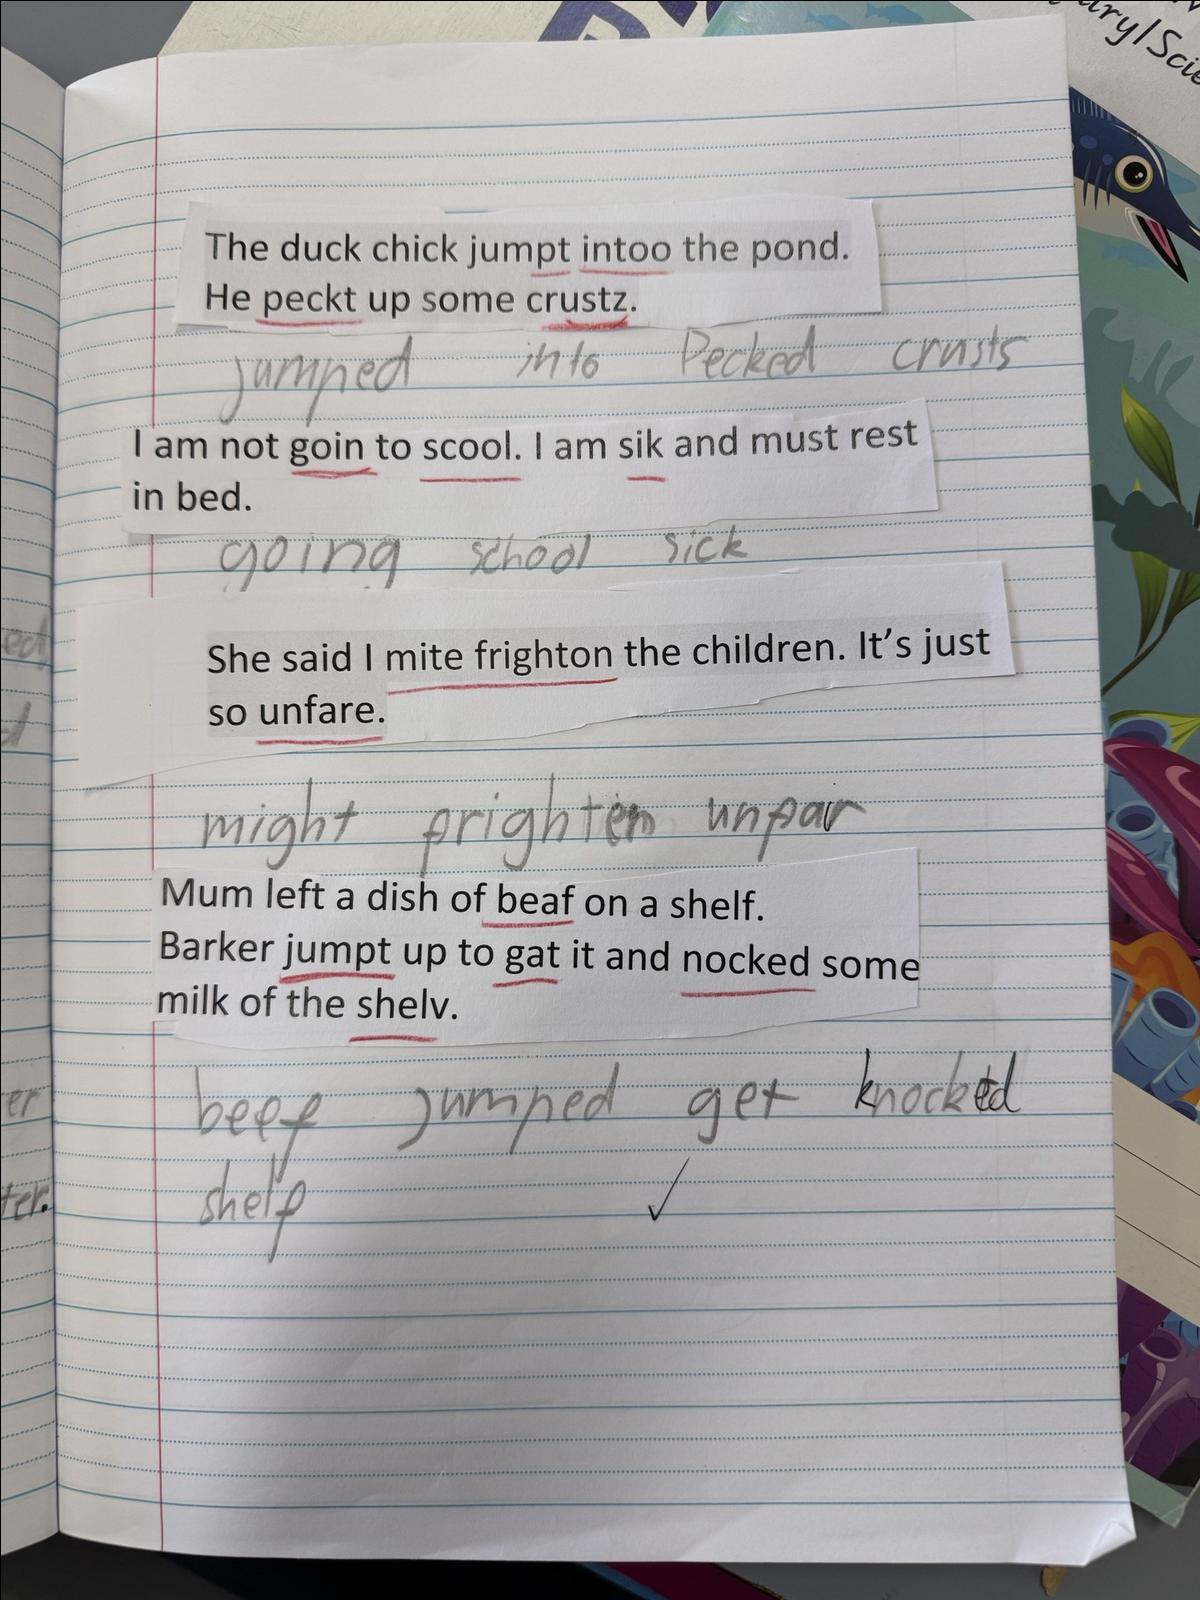 The duck chick jumpt intoo the pond.
He peckt up some crustz.
jumped into Pecked crusts
I am not goin to scool. I am sik and must rest
in bed.
going school sick
She said I mite frighton the children. It's just
so unfare.
might frighten unfair
Mum left a dish of beaf on a shelf.
Barker jumpt up to gat it and nocked some
milk of the shelv.
beef jumped get knocked
shelf